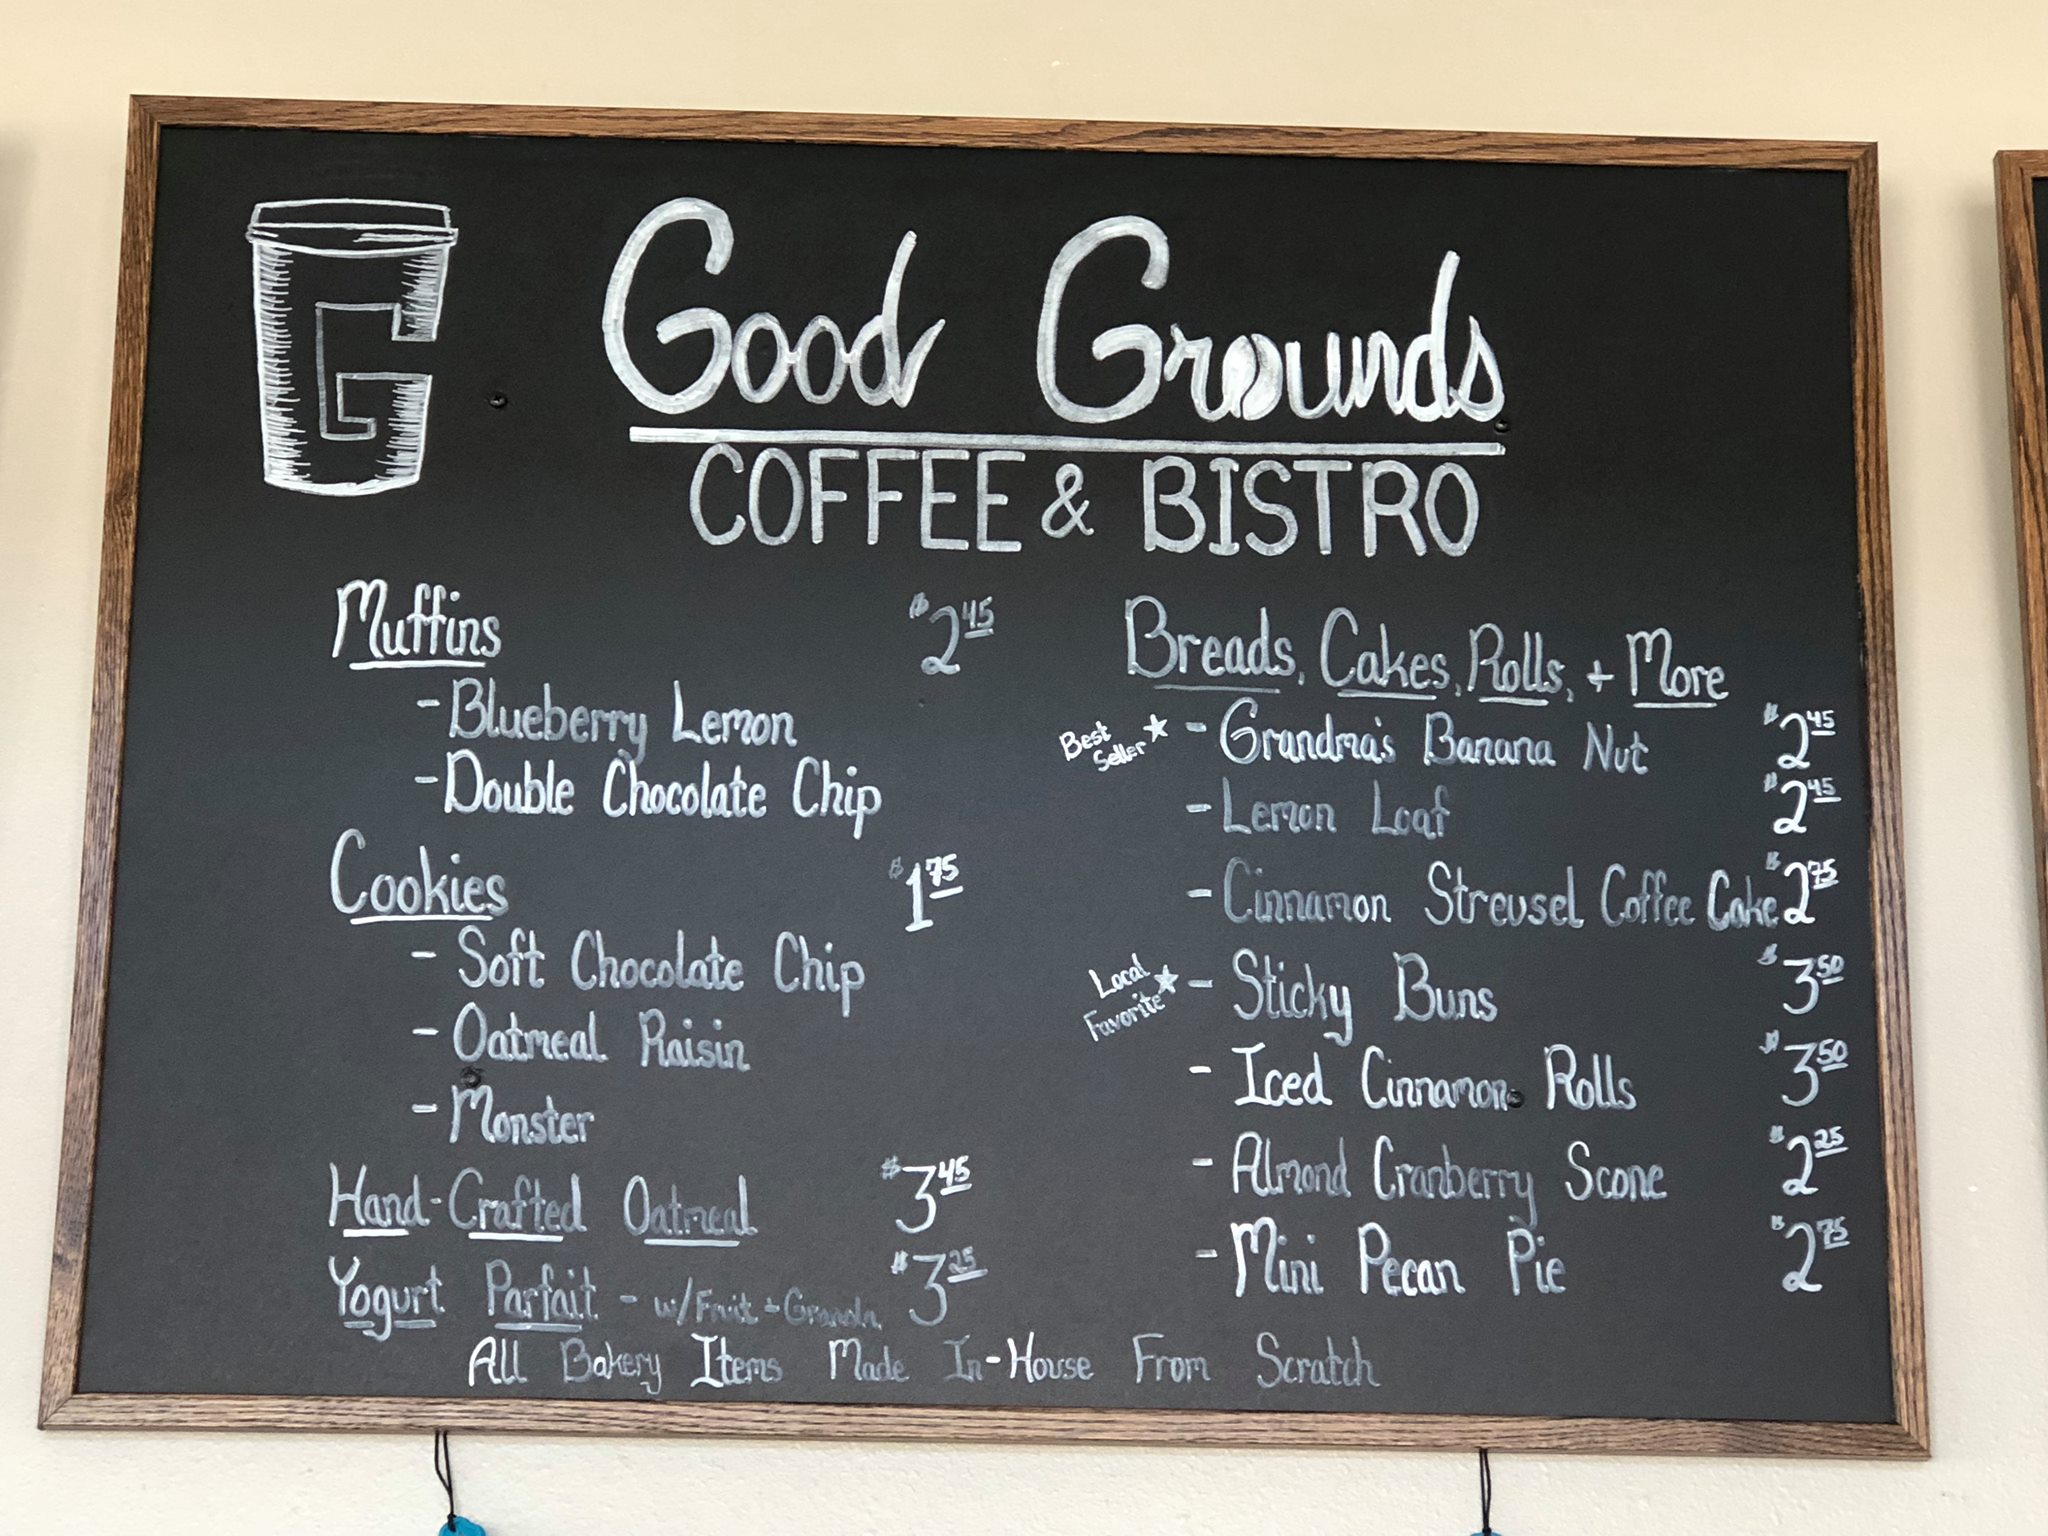 Good Grounds
COFFEE & BISTRO
Muffins $2.45
- Blueberry Lemon
- Double Chocolate Chip
Cookies $1.75
- Soft Chocolate Chip
- Oatmeal Raisin
- Monster
Hand-Crafted Oatmeal $3.45
Yogurt Parfait - w/Fruit + Granola $3.25
Breads, Cakes, Rolls, + More
Best Seller ★ - Grandma's Banana Nut $2.45
- Lemon Loaf $2.45
- Cinnamon Streusel Coffee Cake $2.75
Local Favorite ★ - Sticky Buns $3.50
- Iced Cinnamon Rolls $3.50
- Almond Cranberry Scone $2.25
- Mini Pecan Pie $2.75
All Bakery Items Made In-House From Scratch